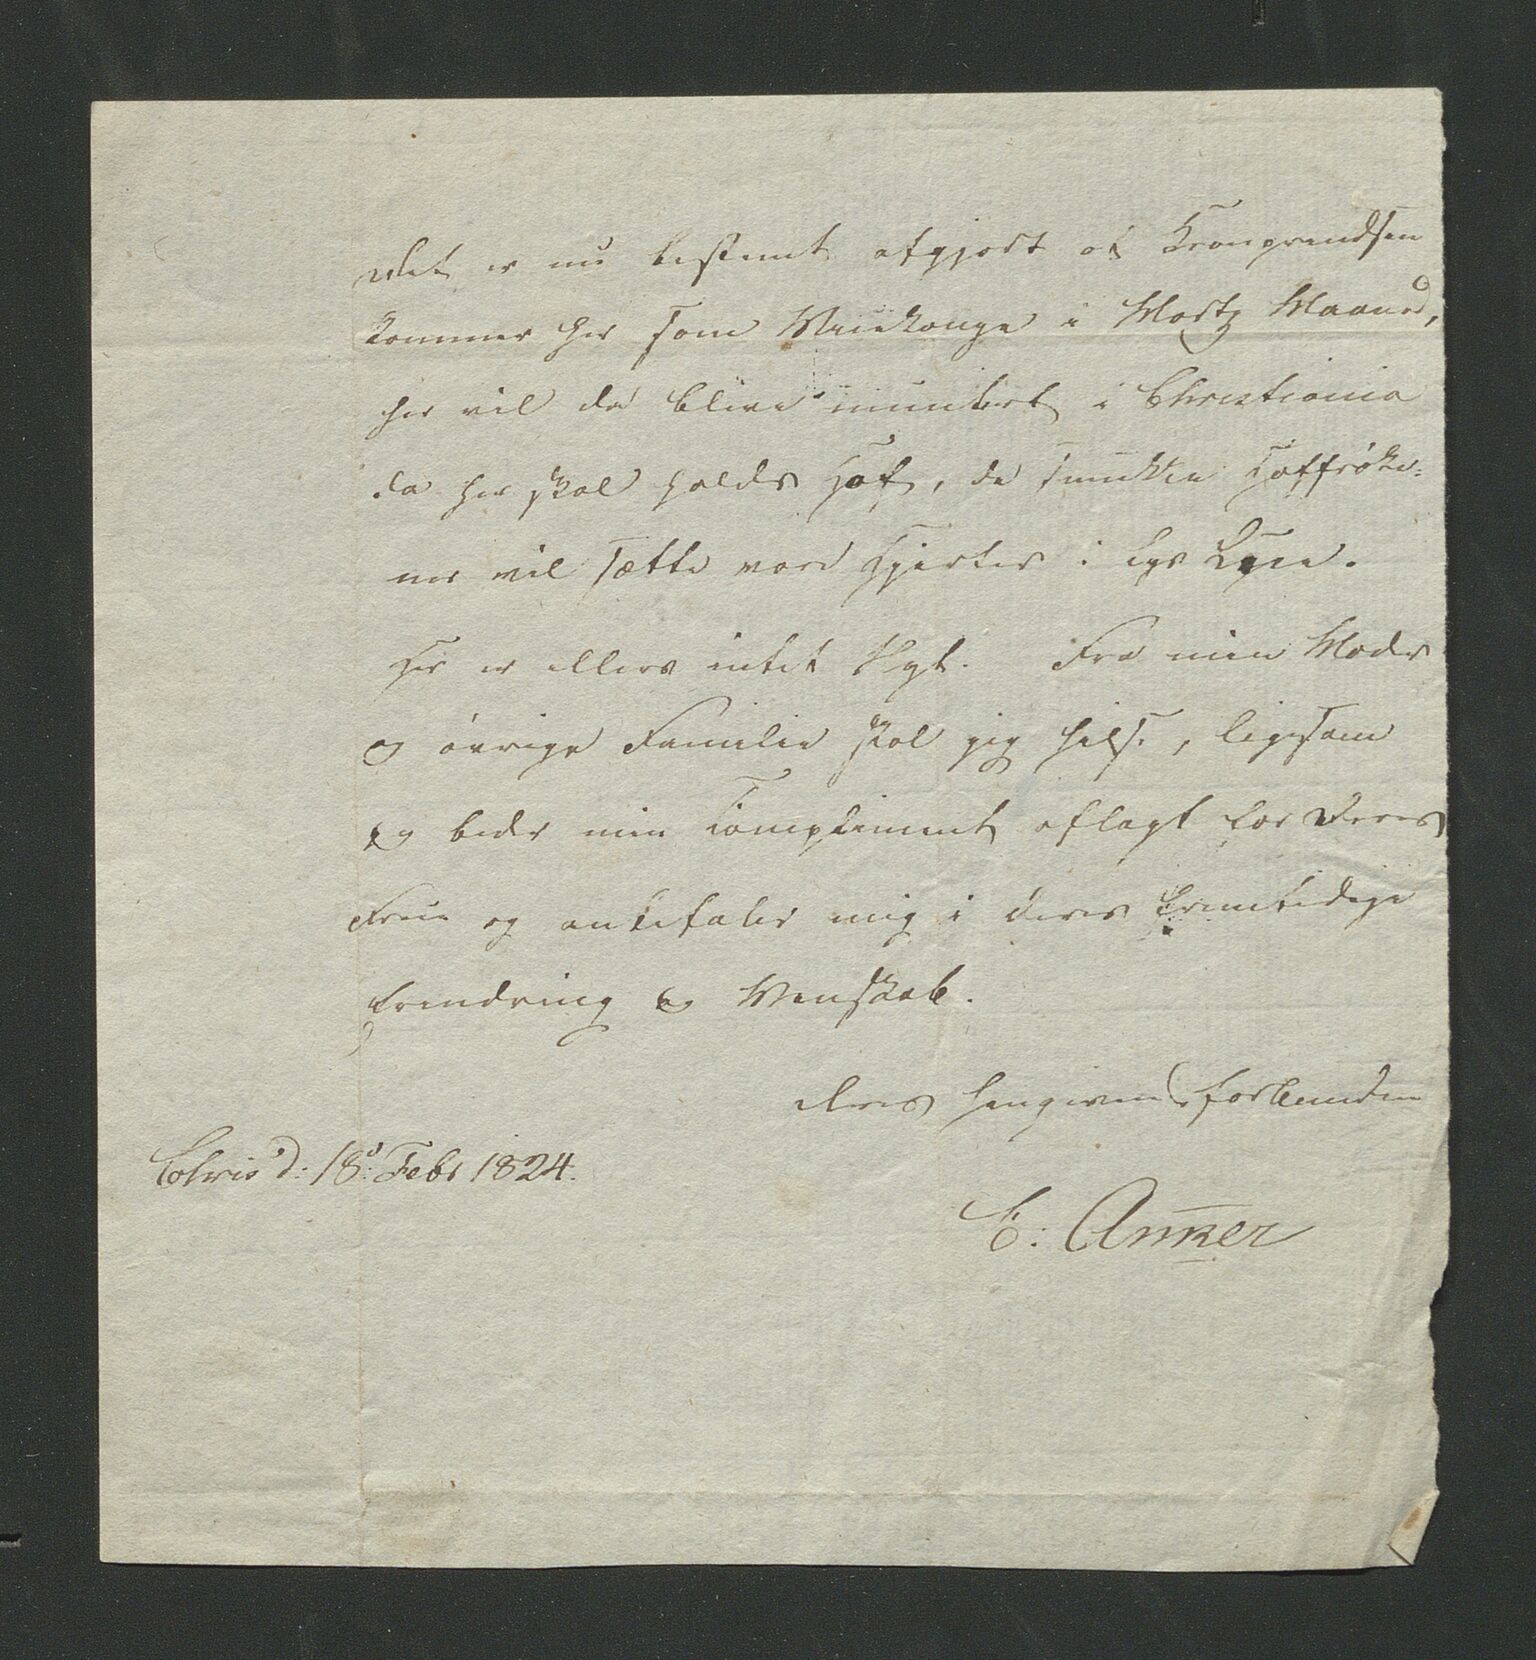 Det er nu bestemt afgjort at Kronprendsen
kommer her som Viicekonge i Martz Maaned,
her vil da blive muntert i Christiania
da her skal holdes Hof, de smukke Hoffrøke-
ner vil sætte vore Hjerter i lys Lue.
Her er ellers intet Nyt. Fra min Moder
og øvrige Familie skal jeg hilse, ligesom
og beder min Compliment aflagt for Deres
Frue og anbefaler mig i Deres fremtidige
Erindring og Venskab.
Deres hengivne forbundne
d: 18d: Febr 1824.
C: Anker